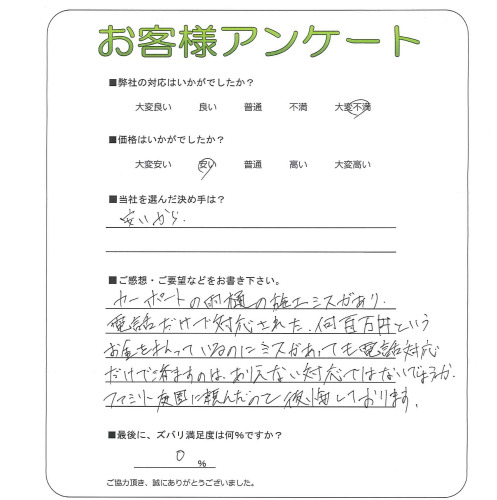 お客様アンケート
■弊社の対応はいかがでしたか？
大変良い 良い 普通 不満 大変不満
■価格はいかがでしたか？
大変安い 安い 普通 高い 大変高い
■当社を選んだ決め手は？
安いから.
■ご感想・ご要望などをお書き下さい。
カーポートの雨樋の施工ミスがあり.
電話だけで対応された. 何百万円という
お金を払っているのにミスがあっても電話対応
だけで済ますのは、ありえない対応ではないでしょうか.
ファミリー庭園に頼んだので後悔しております.
■最後に、ズバリ満足度は何％ですか？
0 ％
ご協力頂き、誠にありがとうございました。